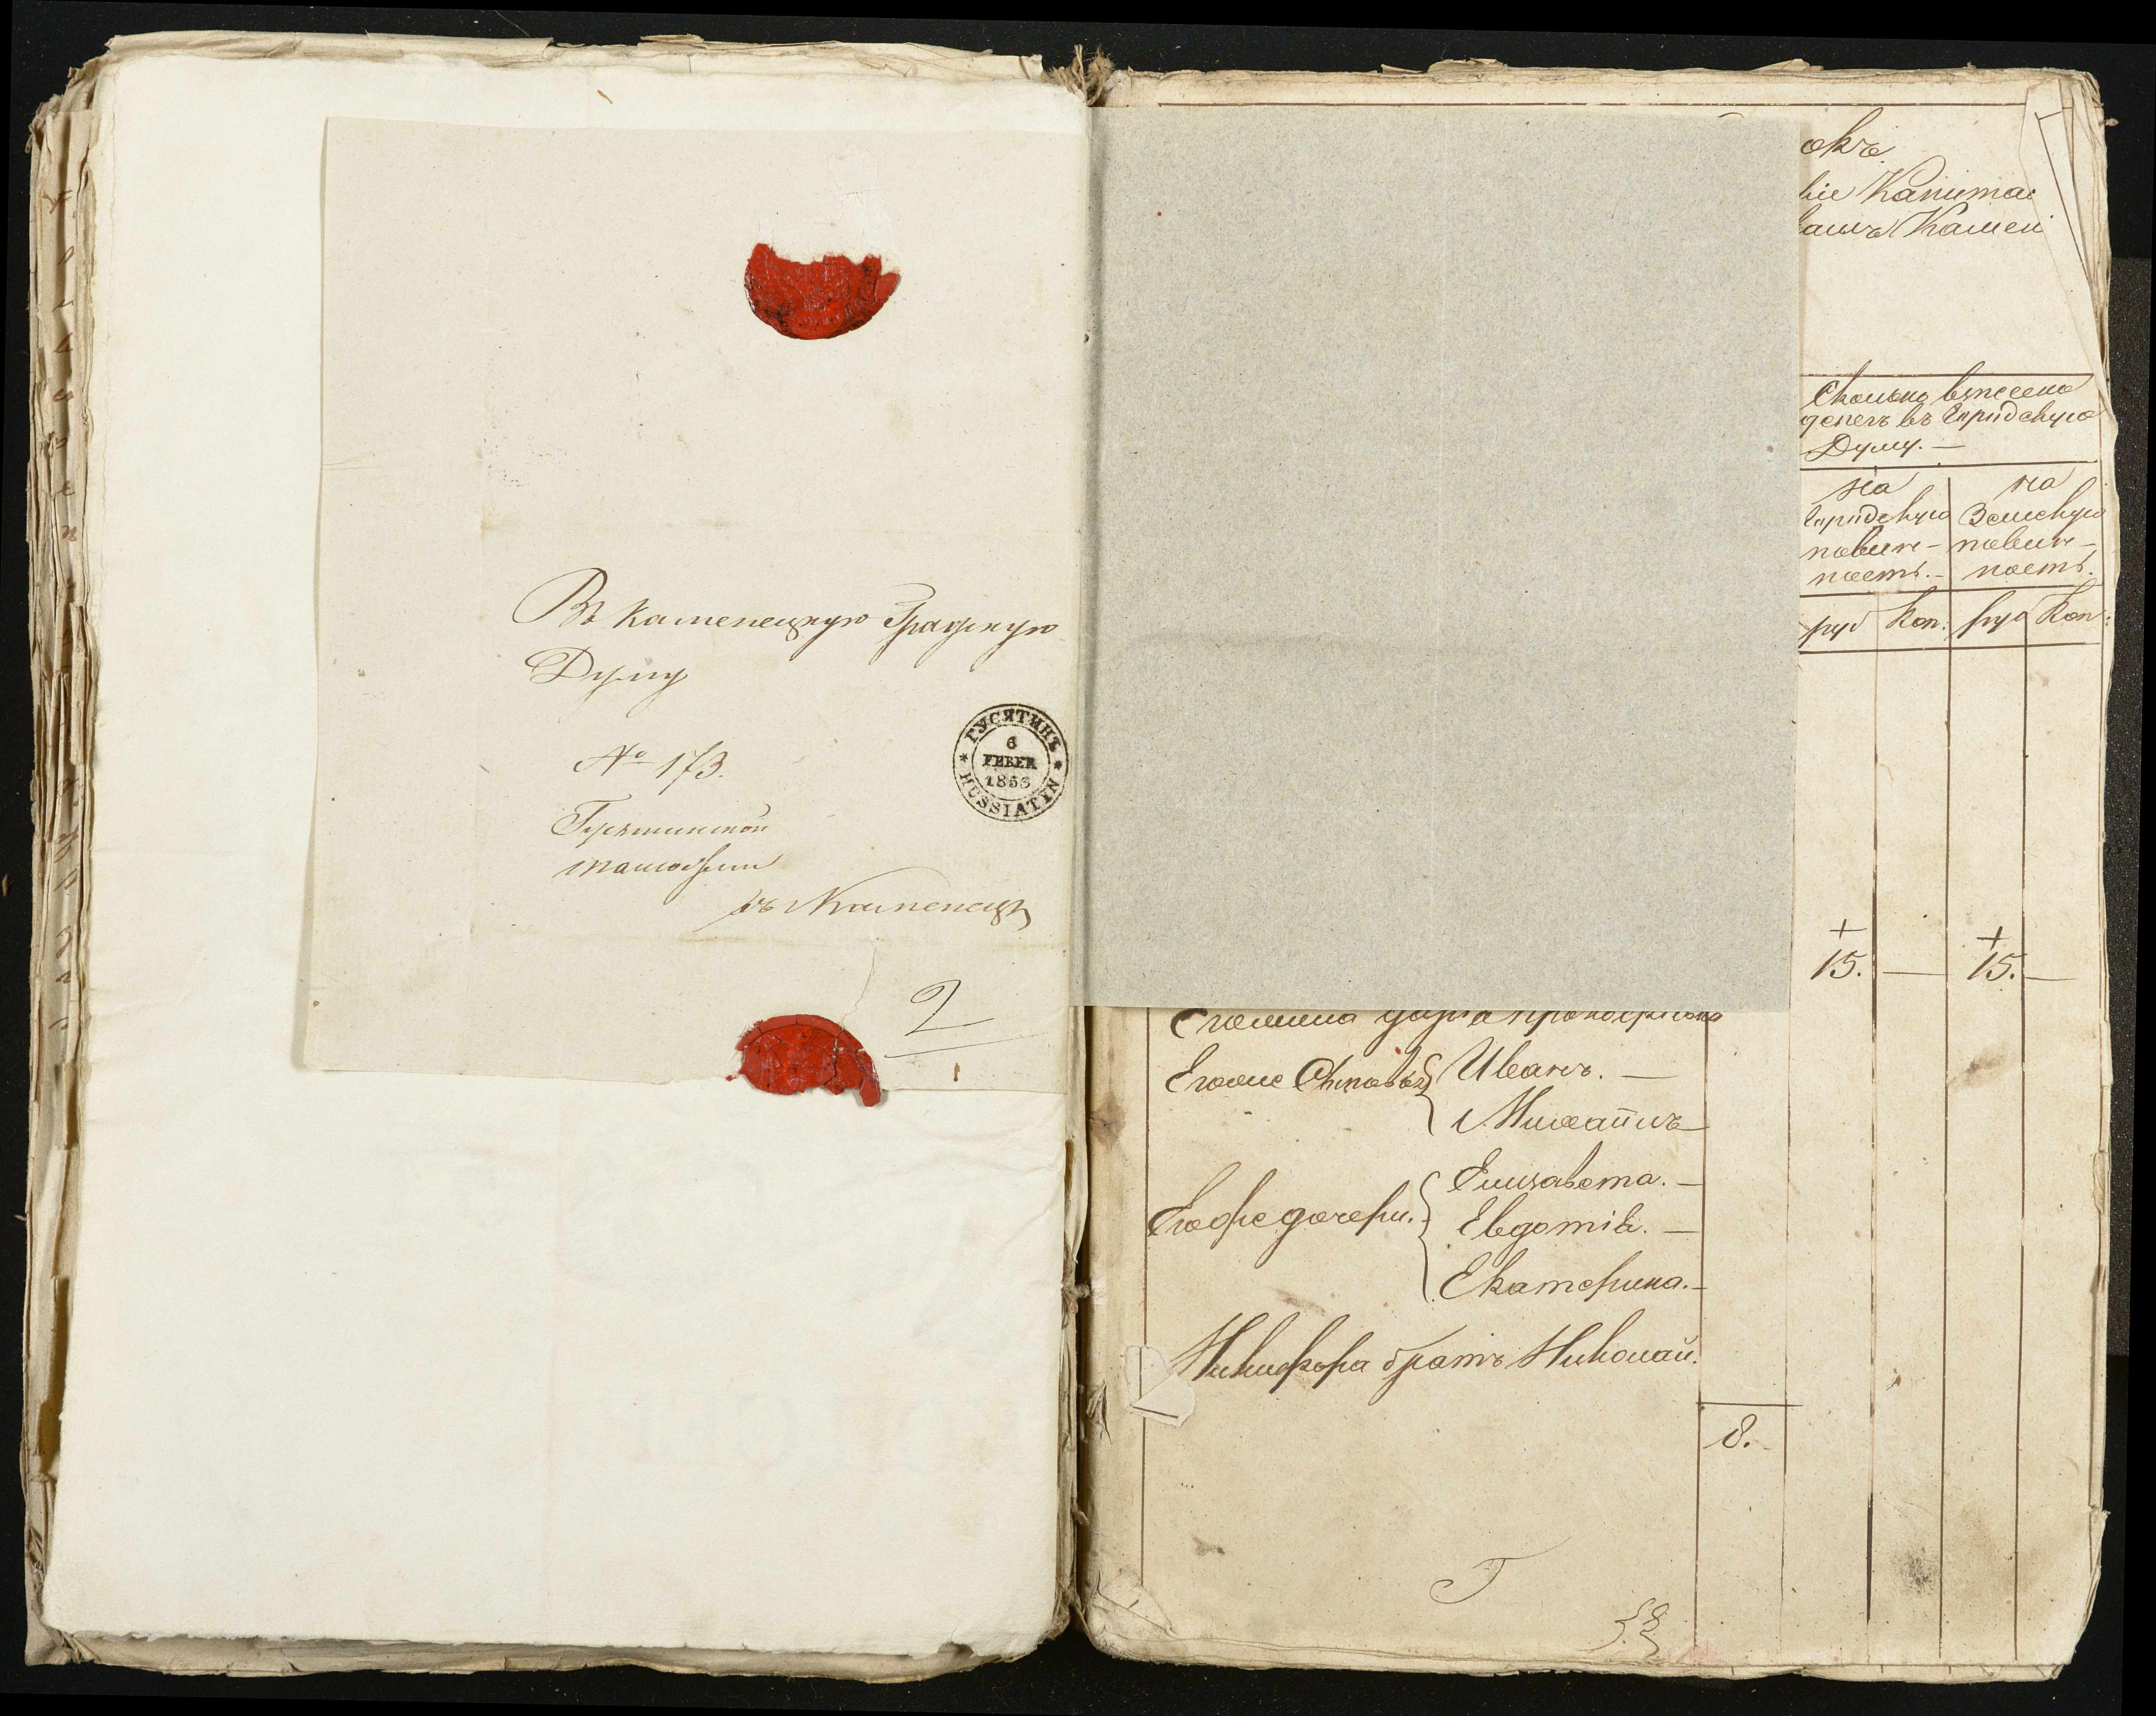 Въ Каменецкую Градскую
Думу
№ 173.
Гусятинской
таможни
въ Каменецъ
ГУСЯТИНЪ
6
FEBER
1855
HUSSIATYN
2
окъ
Камен
Сколько взнесено
денегъ въ Городскую
Думу. —
на
Городскую
повин-
ность. —
на
Земскую
повин-
ность.
руб Коп: руб Коп:
+ +
15. — 15. —
Егоже Сыновья { Иванъ. —
Михаилъ —
Егоже дочери. { Елизавета. —
Евдотія. —
Екатерина. —
Никифора братъ Николай.
8.